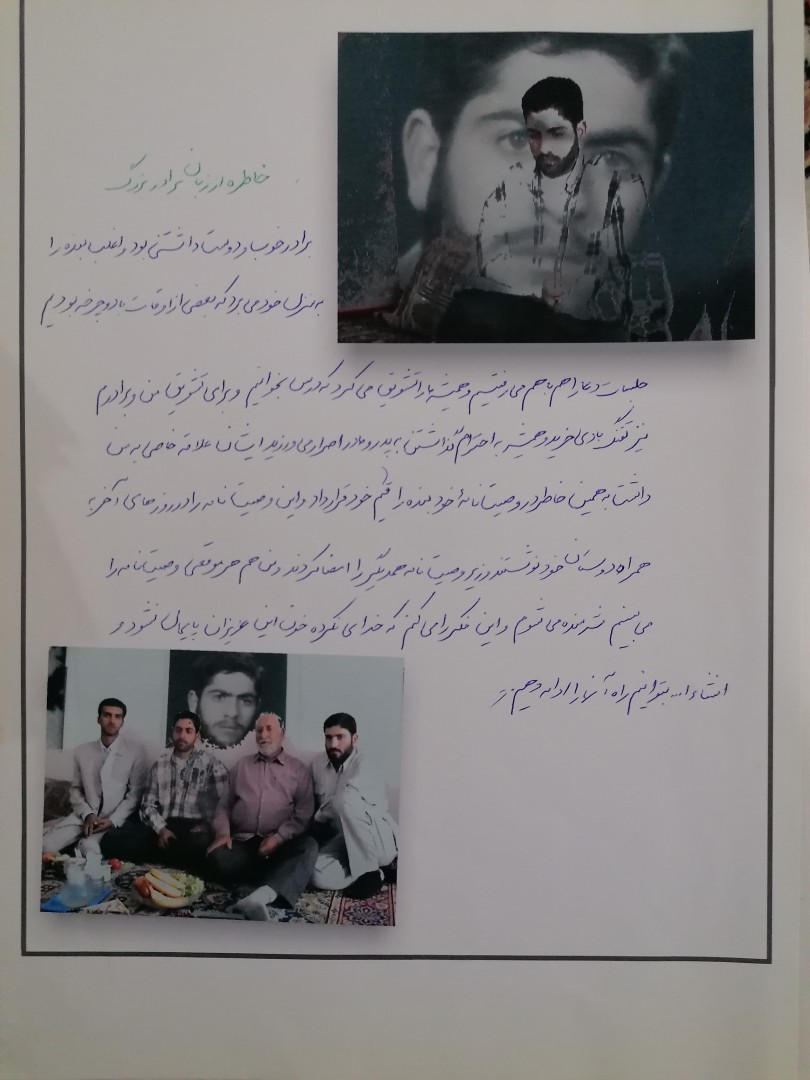 خاطره از زبان برادر بزرگ
برادر خوب و دوست داشتنی بود و اغلب بنده را
به منزل خود می برد که بعضی از اوقات با دوچرخه بودیم
جلسات دعا را هم با هم می رفتیم و همیشه ما را تشویق می کرد که درس بخوانیم و برای تشویق من و برادرم
نیز تفنگ بادی خرید و همیشه به احترام گذاشتن به پدر و مادر اصرار می ورزید ایشان علاقه خاصی به من
داشت به همین خاطر در وصیت نامه خود بنده را قیم خود قرار داد و این وصیت نامه را در روزهای آخر به
همراه دوستان خود نوشتند و زیر وصیت نامه همدیگر را امضا کردند و من هم هر موقعی وصیت نامه را
می بینم شرمنده می شوم و این فکر را می کنم که خدای نکرده خون این عزیزان پایمال نشود و
انشاءالله بتوانیم راه آنها را ادامه دهیم